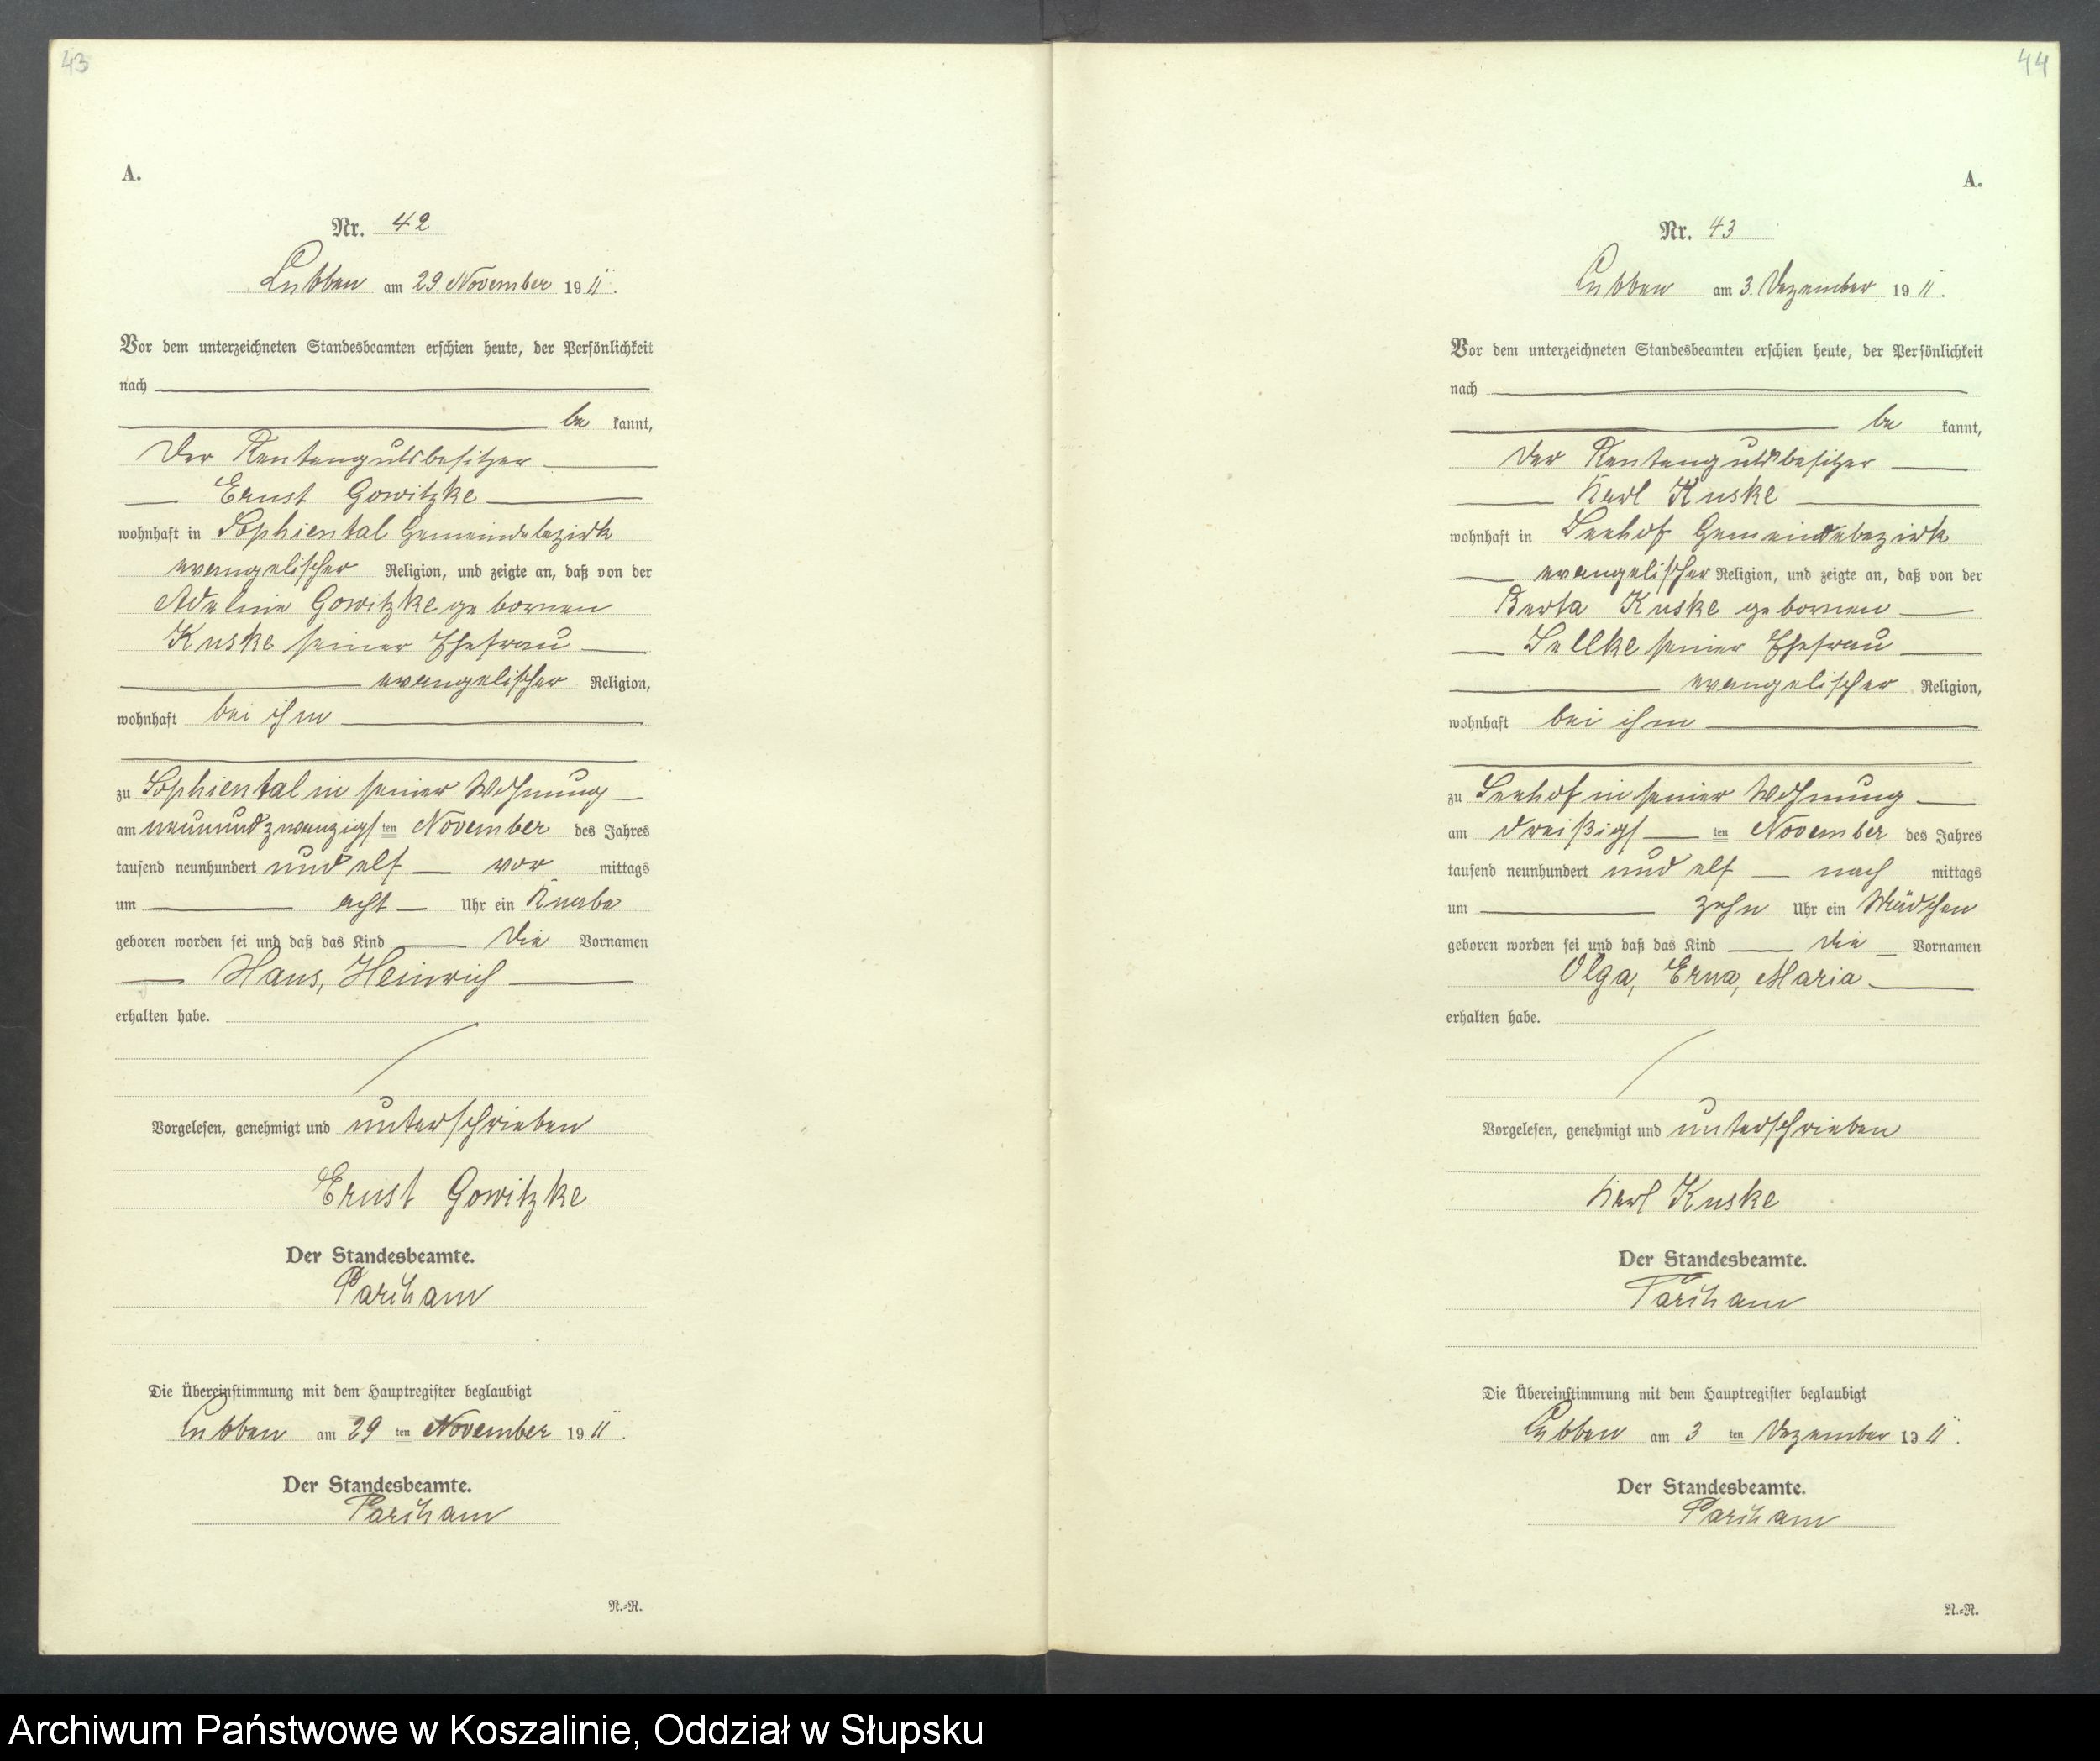 43
A.
Nr. 42
Lubben am 29. November 1911.
Vor dem unterzeichneten Standesbeamten erschien heute, der Persönlichkeit
nach
be kannt,
der Rentengutsbesitzer
Ernst Gowitzke
wohnhaft in Sophiental Gemeindebezirk
evangelischer Religion, und zeigte an, daß von der
Adeline Gowitzke geborenen
Kuske seiner Ehefrau
evangelischer Religion,
wohnhaft bei ihm
zu Sophiental in seiner Wohnung
am neunundzwanzigsten November des Jahres
tausend neunhundert und elf vor mittags
um acht Uhr ein Knabe
geboren worden sei und daß das Kind die Vornamen
Hans, Heinrich
erhalten habe.
Vorgelesen, genehmigt und unterschrieben
Ernst Gowitzke
Der Standesbeamte.
Die Übereinstimmung mit dem Hauptregister beglaubigt
Lubben am 29 ten November 1911.
Der Standesbeamte.
N.=R.
44
A.
Nr. 43
Lubben am 3. Dezember 1911.
Vor dem unterzeichneten Standesbeamten erschien heute, der Persönlichkeit
nach
be kannt,
der Rentengutsbesitzer
Karl Kuske
wohnhaft in Seehof Gemeindebezirk
evangelischer Religion, und zeigte an, daß von der
Berta Kuske geborenen
Sellke seiner Ehefrau
evangelischer Religion,
wohnhaft bei ihm
zu Seehof in seiner Wohnung
am dreißigsten November des Jahres
tausend neunhundert und elf nach mittags
um zehn Uhr ein Mädchen
geboren worden sei und daß das Kind die Vornamen
Olga, Erna, Maria
erhalten habe.
Vorgelesen, genehmigt und unterschrieben
Karl Kuske
Der Standesbeamte.
Die Übereinstimmung mit dem Hauptregister beglaubigt
Lubben am 3 ten Dezember 1911.
Der Standesbeamte.
N.=R.
Archiwum Państwowe w Koszalinie, Oddział w Słupsku